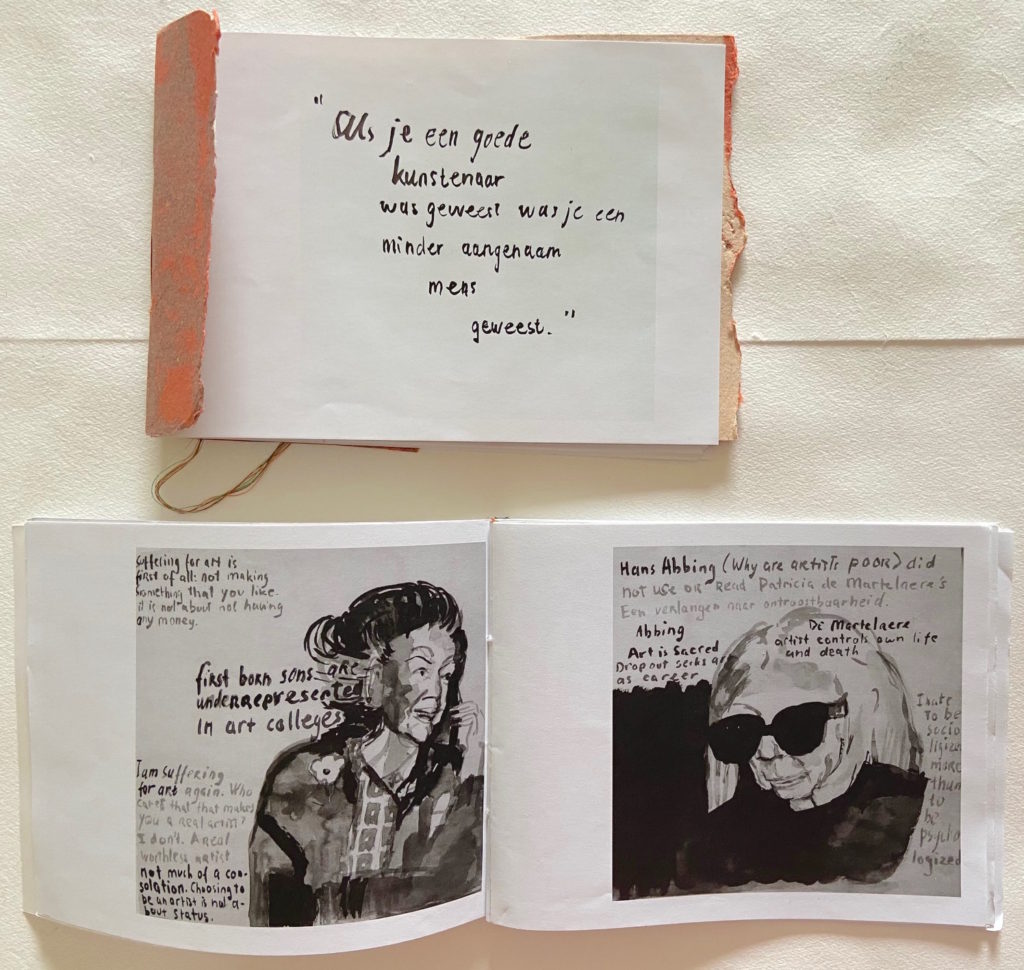 " Als je een goede
kunstenaar
was geweest was je een
minder aangenaam
mens
geweest. "
Suffering for art is
first of all: not making
something that you like.
it is not about not having
any money.
first born sons are
underrepresented
in art colleges
I am suffering
for art again. Who
cares that that makes
you a real artist?
I don't. A real
worthless artist
not much of a con-
solation. Choosing to
be an artist is not a-
bout status.
Hans Abbing (Why are artists poor) did
not use or read Patricia de Martelaere's
Een verlangen naar ontroostbaarheid.
Abbing
Art is Sacred
Drop out seeks art
as career
De Martelaere
artist controls own life
and death
I hate
to be
socio
ligized
more
than
to
be
psycho
logized